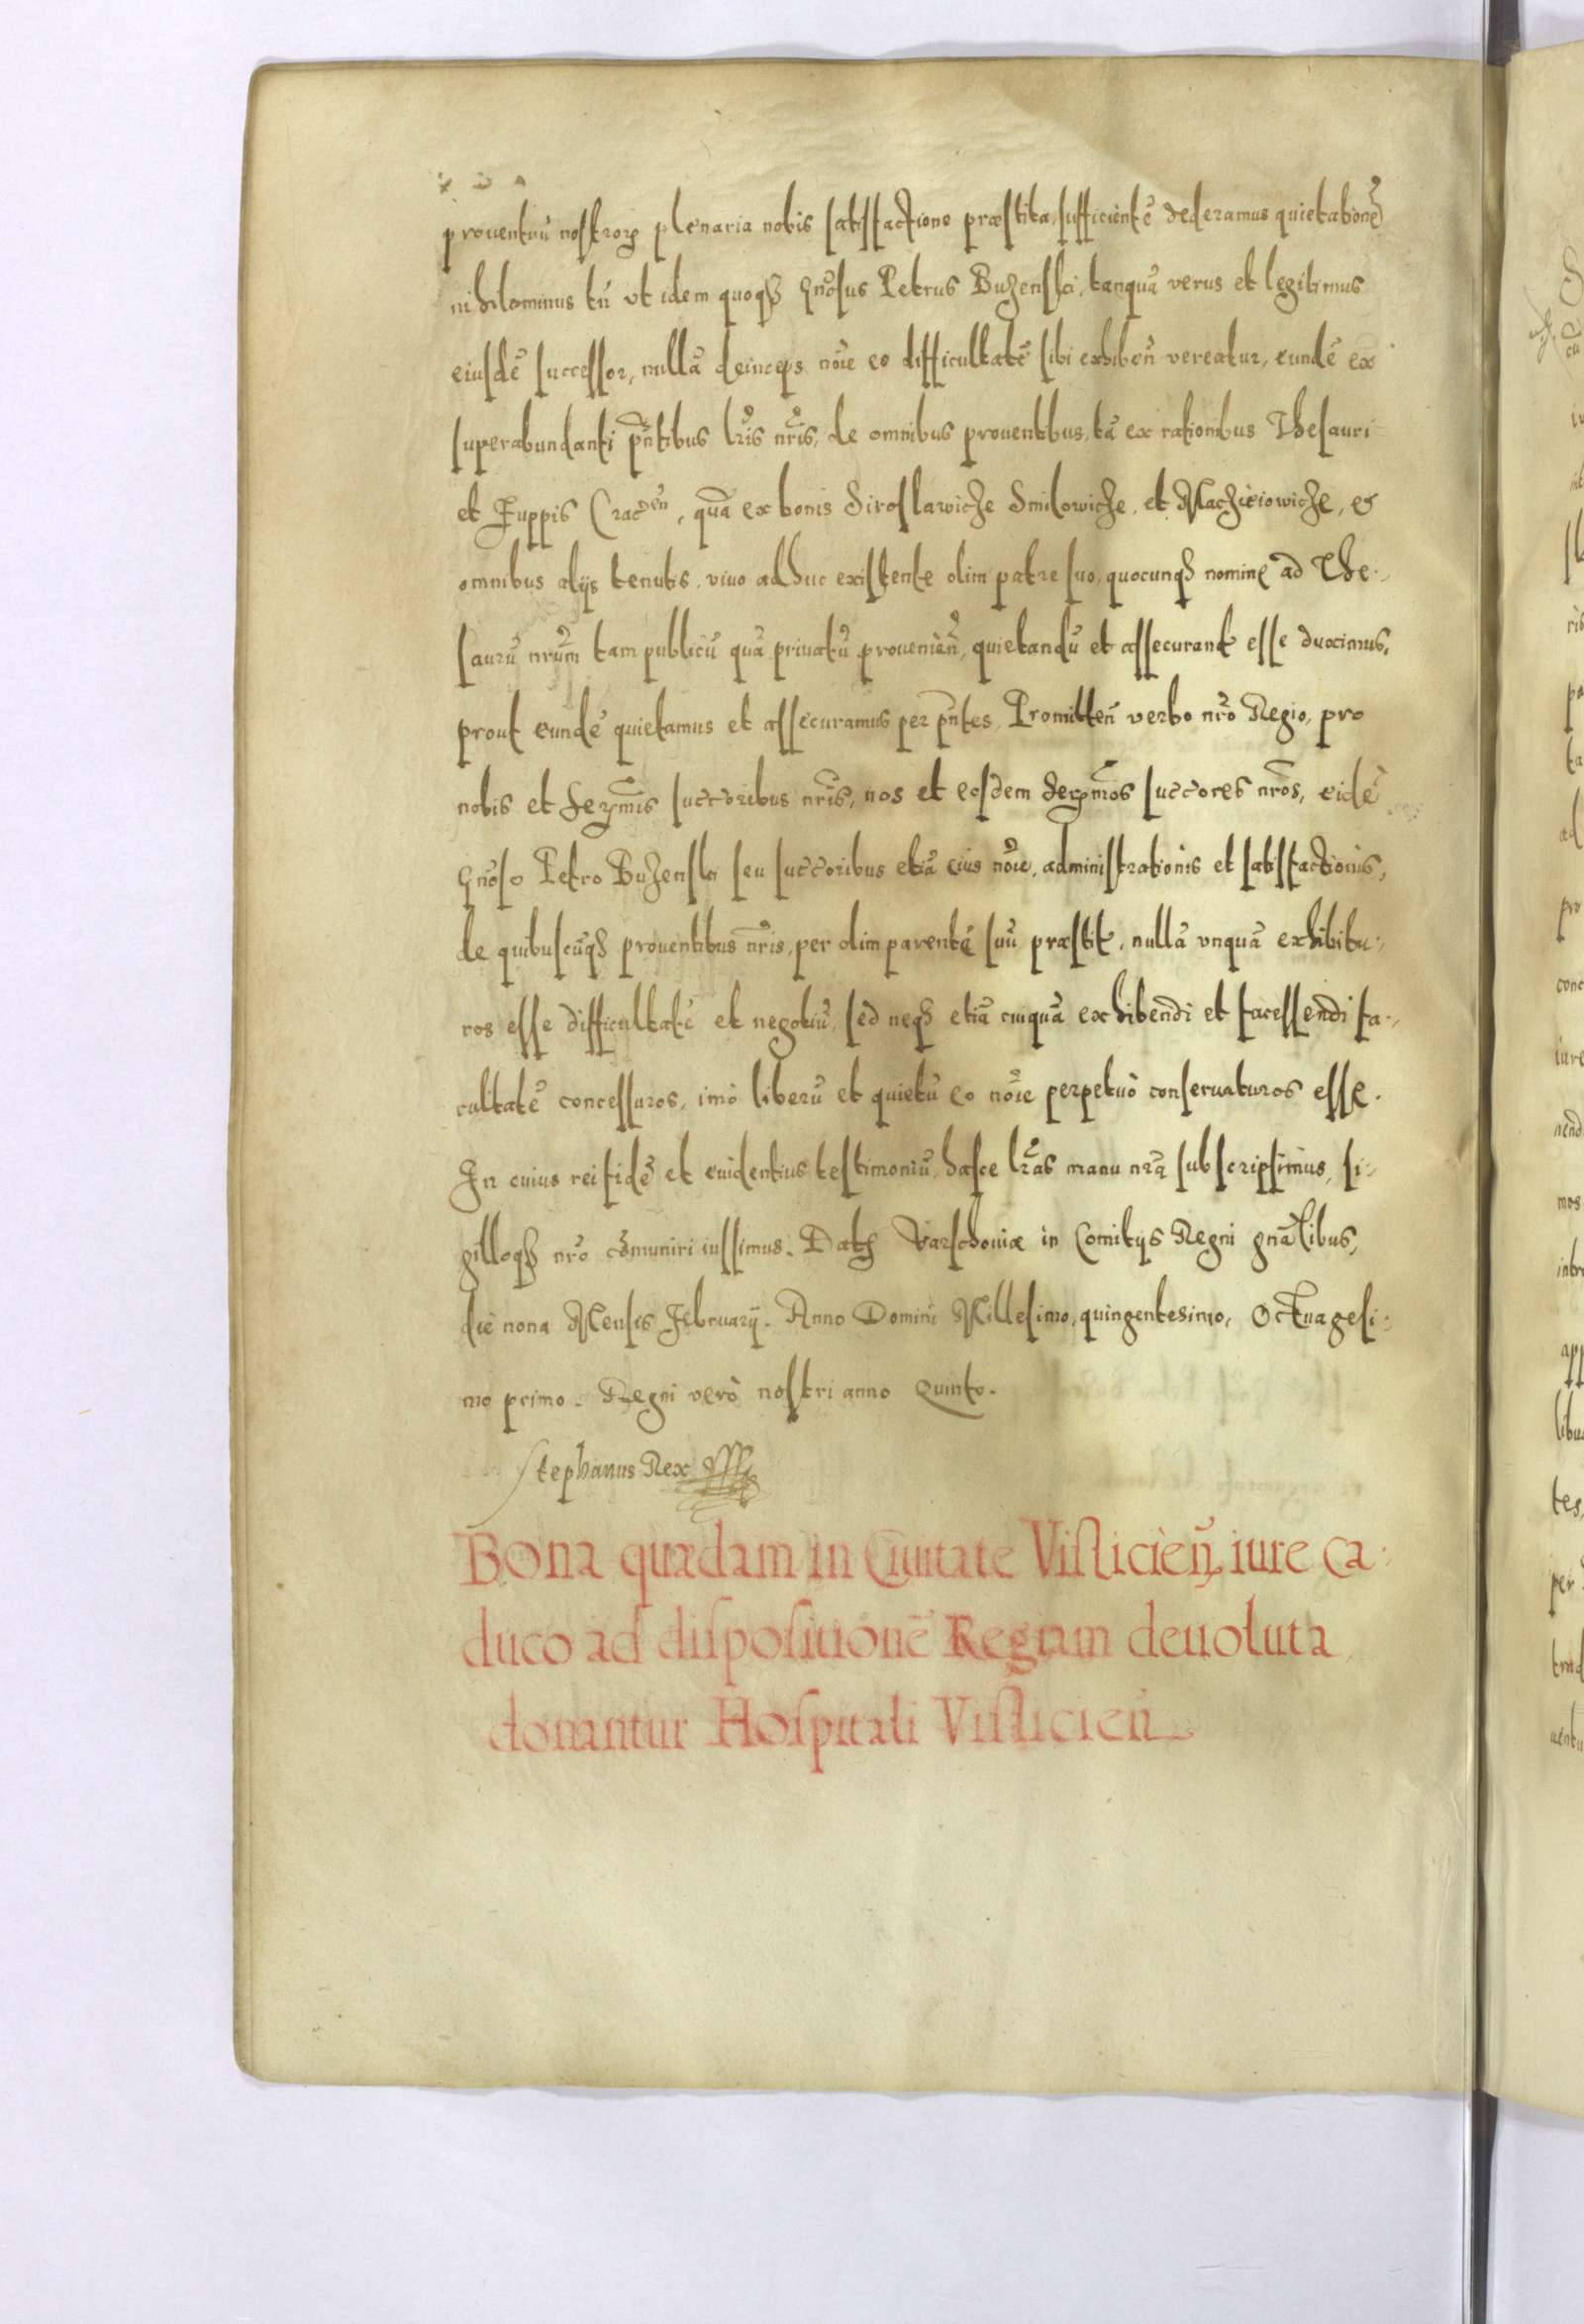 prouentuũ nostroꝝ plenaria nobis satisfactione præstita, sufficientẽ dederamus quietationẽ
nihilominus tñ vt idem quoqꝫ Gñosus Petrus Buzenski, tanquã verus et legitimus
eiusdẽ successor, nullã deinceps nõie eo difficultatẽ sibi exhiberi vereatur, eundẽ ex
superabundanti p̃ntibus lr̃is nr̃is, de omnibus prouentibus, tã ex rationibus Thesauri
et Zuppis Cracoen̄, quã ex bonis Siroslawicze Smilowicze, et Maczieiowicze, et
omnibus alijs tenutis, viuo adhuc existente olim patre suo, quocunqꝫ nomine ad The-
saurũ nr̃um tam publicũ quã priuatũ prouenien̄, quietandũ et assecurand esse duximus,
prout eundẽ quietamus et assecuramus per p̃ntes, Promitten̄ verbo nr̃o Regio, pro
nobis et Serꝫmis succr̃oribus nr̃is, nos et eosdem Serꝫmos succr̃ores nr̃os, eidẽ
Gñoso Petro Buzenski seu succr̃oribus etiã eius nõie, administrationis et satisfactionis,
de quibuscũqꝫ prouentibus nr̃is, per olim parentẽ suũ præstit, nullã vnquã exhibitu-
ros esse difficultatẽ et negotiũ, sed neqꝫ etiã cuiquã exhibendi et facessendi fa-
cultatẽ concessuros, imò liberũ et quietũ eo nõie perpetuò conseruaturos esse.
In cuius rei fidẽ et euidentius testimoniũ, hasce lr̃as manu nr̃a subscripsimus, si-
gilloqꝫ nr̃o cõmuniri iussimus. Datꝫ Varschouiæ in Comitijs Regni gñalibus,
die nona Mensis Februarij. Anno Domini Millesimo, quingentesimo, Octuagesi-
mo primo. Regni verò nostri anno Quinto.
Stephanus Rex
Bona quædam in Ciuitate Visliciẽn, iure ca-
duco ad dispositionẽ Regiam deuoluta
donantur Hospitali Vislicieñ